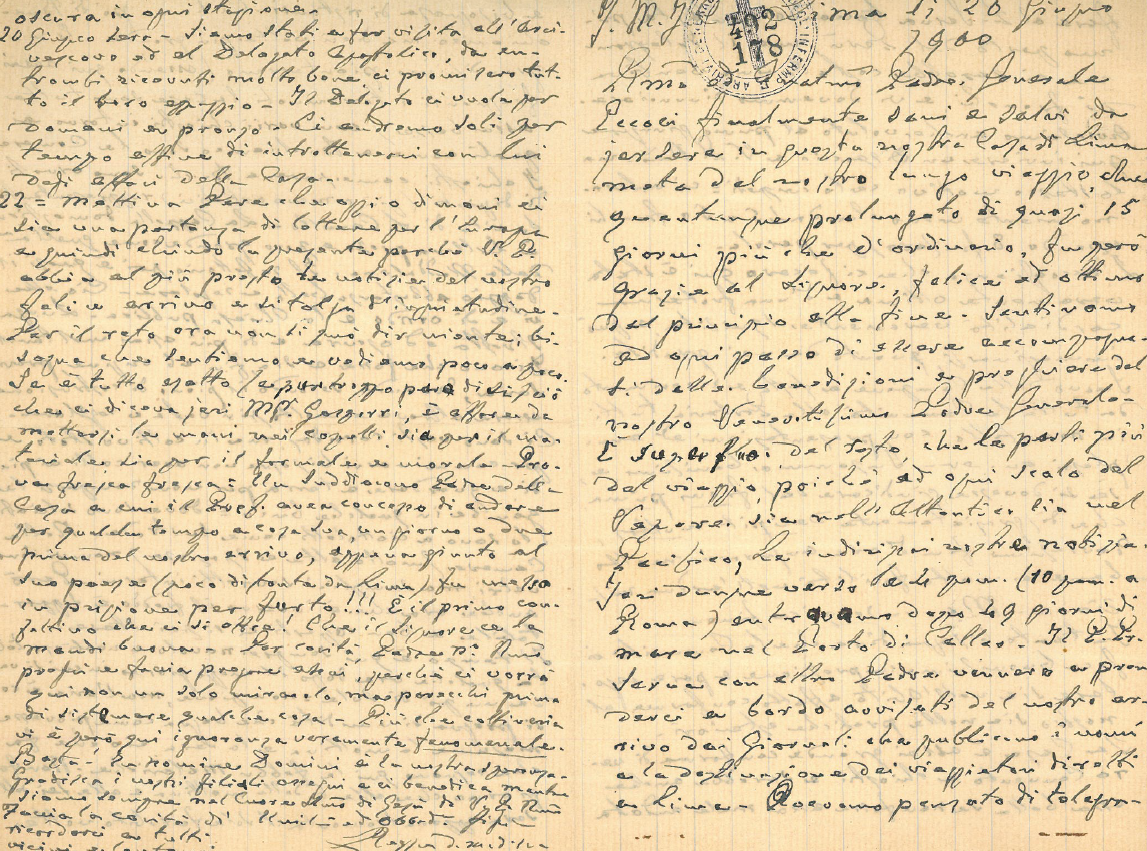 oscura in ogni stagione.
20 Giugno sera - Siamo stati a far visita all'Arci-
vescovo ed al Delegato Apostolico, da en-
trambi ricevuti molto bene ci promisero tut-
to il loro appoggio - Il Delegato ci vuole per
domani a pranzo. Ci andremo soli per
tempo affine di intrattenerci con lui
degli affari della Casa.
22 = mattina Pare che oggi o domani ci
sia una partenza di lettere per l'Europa
e quindi chiudo la presente perchè V. P.
abbia al più presto le notizie del nostro
felice arrivo e si tolga d'inquietudine.
Per il resto ora non si può dir niente; bi-
sogna che sentiamo e vediamo poco a poco.
Se è tutto esatto (e purtroppo pare di sì) ciò
che ci diceva jeri Mgr. Gasparri, è affare da
mettersi le mani nei capelli sia per il ma-
teriale sia per il formale e morale - Pro-
va fresca fresca: Un Suddiacono Padre della
Casa a cui il Pref. avea concesso di andare
per qualche tempo a casa sua, un giorno o due
prima del nostro arrivo, appena giunto al
suo paese (poco distante da Lima) fu messo
in prigione per furto!!! È il primo con-
fettino che ci si offre! Che il Signore ce la
mandi buona - Per carità, Padre
preghi e faccia pregare assai, perchè ci vorrà
qui non un solo miracolo, ma parecchi prima
di sistemare qualche cosa - Più che cattiveria
vi è però qui ignoranza veramente fenomenale.
Basta! In nomine Domini è la nostra speranza.
Gradisca i nostri filiali ossequi e ci benedica mentre
siamo sempre nel Cuore di Gesù di V. P.
Faccia la carità di
ricordarci a tutti
vicini e lontani
J. M. J. Lima li 20 Giugno
1900
Rmo Padre Generale
Eccoci finalmente sani e salvi da
jersera in questa nostra Casa di Lima
meta del nostro lungo viaggio, che
quantunque prolungato di quasi 15
giorni più che d'ordinario, fu però
grazie al Signore, felice ed ottimo
dal principio alla fine. Sentivamo
ad ogni passo di essere accompagna-
ti dalle benedizioni e preghiere del
nostro Veneratissimo Padre Generale.
È superfluo del resto, che Le parli più
del viaggio, poichè ad ogni scalo del
Vapore sia nell'Atlantico sia nel
Pacifico, Le indirizzai nostre notizie.
Jeri dunque verso le 4 pom. (10 pom. a
Roma) entravamo dopo 49 giorni di
mare nel Porto di Callao. Il P. Pr.
con altro Padre vennero a pren
derci a bordo avvisati del nostro ar
rivo dai Giornali che publicano i nomi
e la destinazione dei viaggiatori diretti
a Lima - Avevamo pensato di telegra-